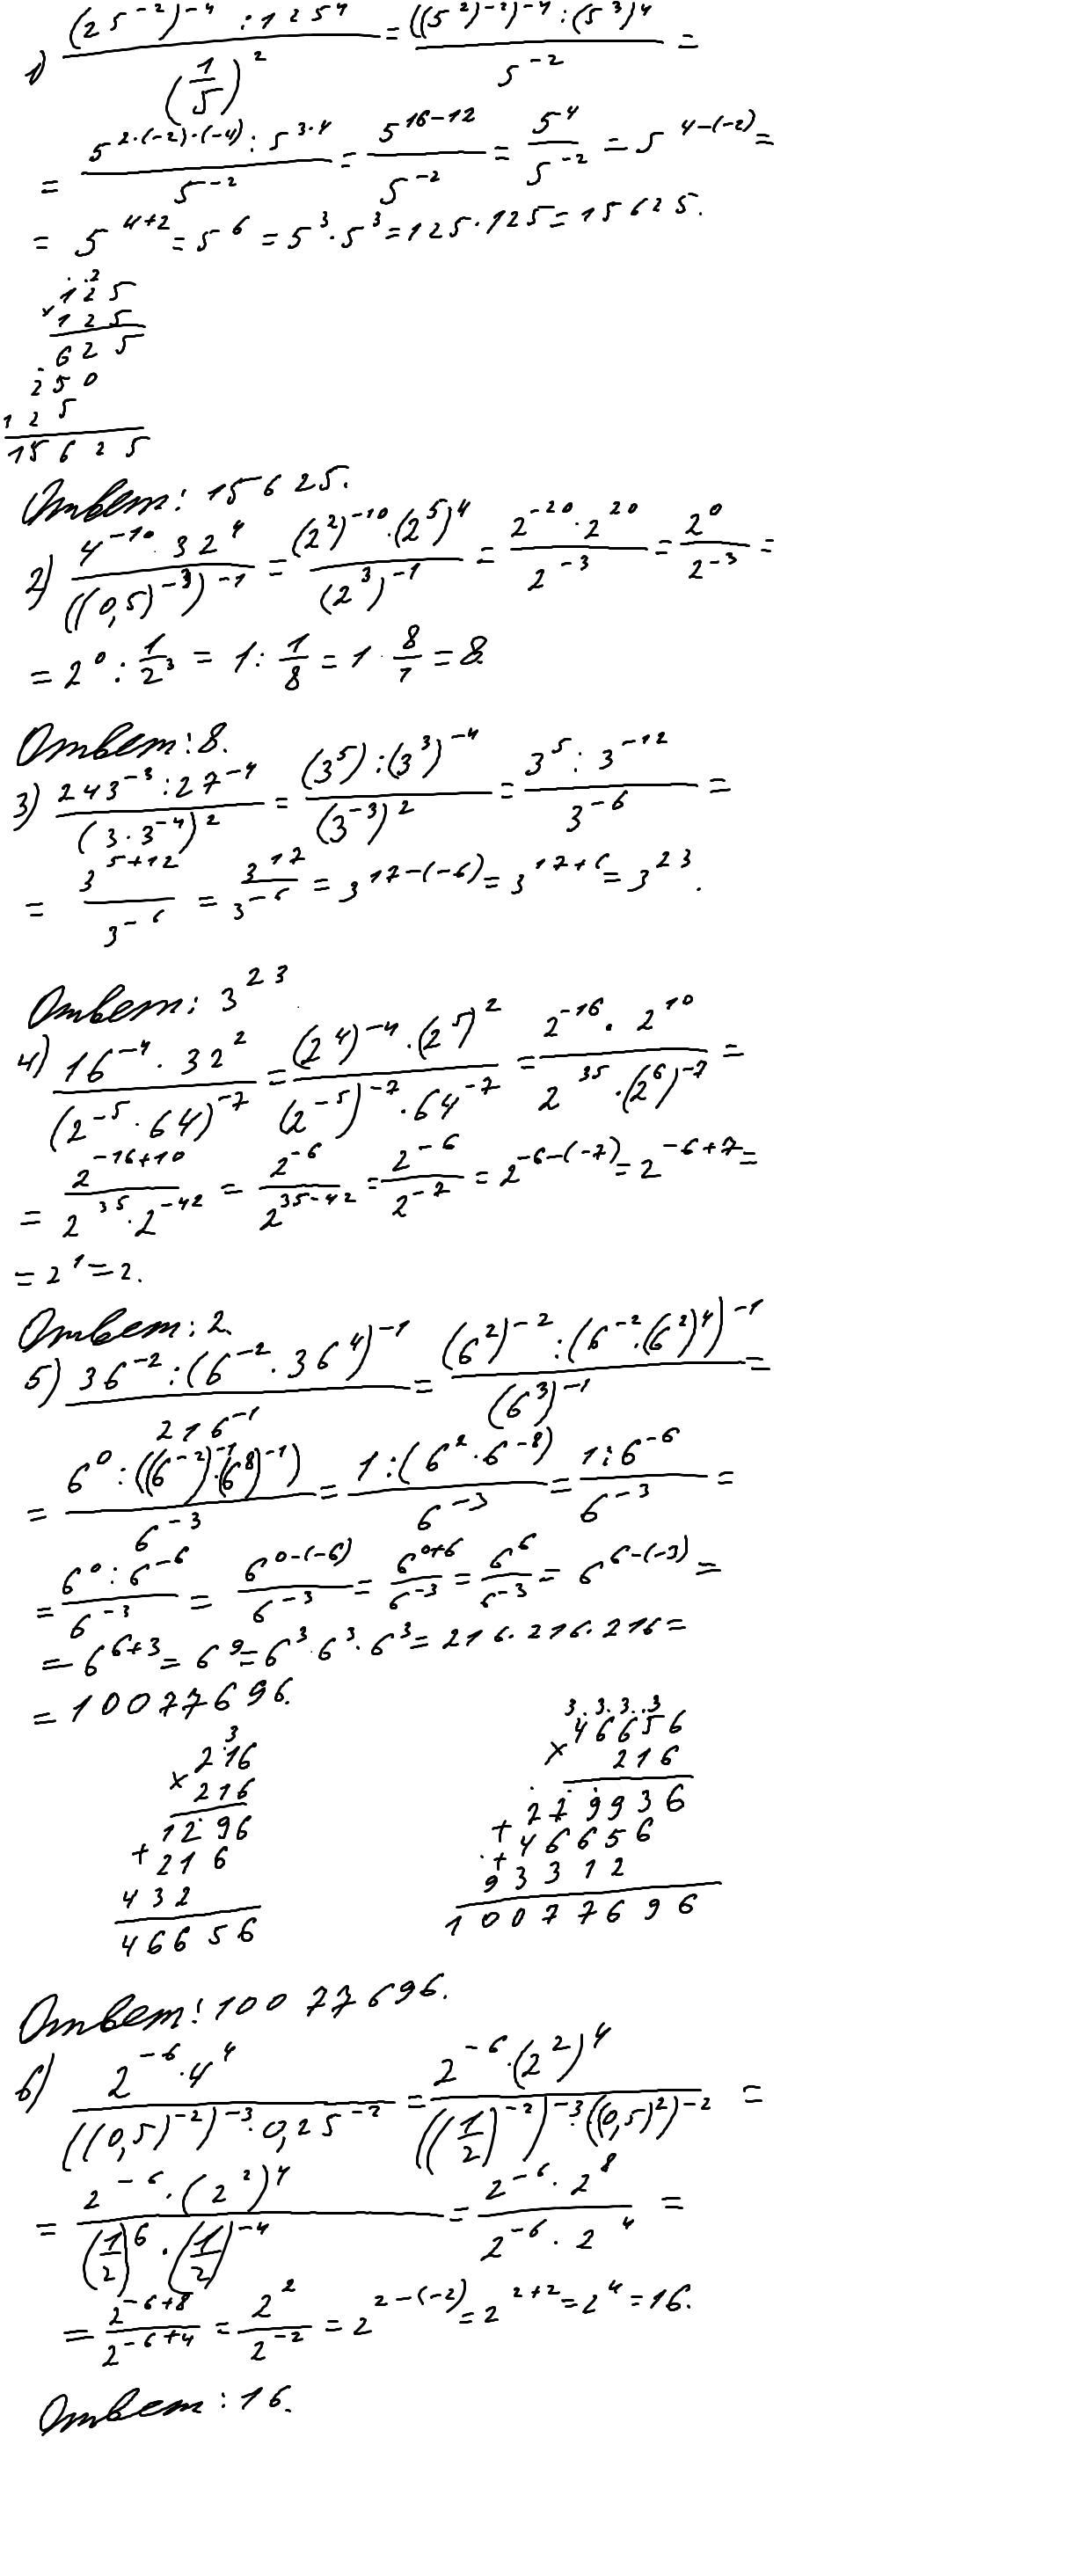 1) ((25^-2)^-4 : 125^4)/(1/5)^2 = (((5^2)^-2)^-4 : (5^3)^4)/5^-2 =
= (5^(2·(-2)·(-4)) : 5^(3·4))/5^-2 = 5^(16-12)/5^-2 = 5^4/5^-2 = 5^(4-(-2)) =
= 5^(4+2) = 5^6 = 5^3 · 5^3 = 125 · 125 = 15625.
. . 2
125
× 125
625
250
125
15625
Ответ: 15625.
2) (4^-10 · 32^4)/((0,5)^-3)^-1 = ((2^2)^-10 · (2^5)^4)/(2^3)^-1 = (2^-20 · 2^20)/2^-3 = 2^0/2^-3 =
= 2^0 : 1/2^3 = 1 : 1/8 = 1 · 8/1 = 8.
Ответ: 8.
3) (243^-3 : 27^-4)/(3 · 3^-4)^2 = ((3^5) : (3^3)^-4)/(3^-3)^2 = (3^5 : 3^-12)/3^-6 =
= 3^(5+12)/3^-6 = 3^17/3^-6 = 3^(17-(-6)) = 3^(17+6) = 3^23.
Ответ: 3^23
4) (16^-4 · 32^2)/(2^-5 · 64)^-7 = ((2^4)^-4 · (2^5)^2)/((2^-5)^-7 · 64^-7) = (2^-16 · 2^10)/(2^35 · (2^6)^-7) =
= 2^(-16+10)/(2^35 · 2^-42) = 2^-6/2^(35-42) = 2^-6/2^-7 = 2^(-6-(-7)) = 2^(-6+7) =
= 2^1 = 2.
Ответ: 2.
5) (36^-2 : (6^-2 · 36^4)^-1)/216^-1 = ((6^2)^-2 : (6^-2 · (6^2)^4)^-1)/(6^3)^-1 =
= (6^0 : ((6^-2)^-1 · (6^8)^-1))/6^-3 = (1 : (6^2 · 6^-8))/6^-3 = (1 : 6^-6)/6^-3 =
= (6^0 : 6^-6)/6^-3 = 6^(0-(-6))/6^-3 = 6^(0+6)/6^-3 = 6^6/6^-3 = 6^(6-(-3)) =
= 6^(6+3) = 6^9 = 6^3 · 6^3 · 6^3 = 216 · 216 · 216 =
= 10077696.
3
216
× 216
1296
+ 216
432
46656
3. 3. 3. .3
46656
× 216
279936
+ 46656
+ 93312
10077696
Ответ: 10077696.
6) (2^-6 · 4^4)/(((0,5)^-2)^-3 · 0,25^-2) = (2^-6 · (2^2)^4)/(((1/2)^-2)^-3 · ((0,5)^2)^-2) =
= (2^-6 · (2^2)^4)/((1/2)^6 · (1/2)^-4) = (2^-6 · 2^8)/(2^-6 · 2^4) =
= 2^(-6+8)/2^(-6+4) = 2^2/2^-2 = 2^(2-(-2)) = 2^(2+2) = 2^4 = 16.
Ответ: 16.